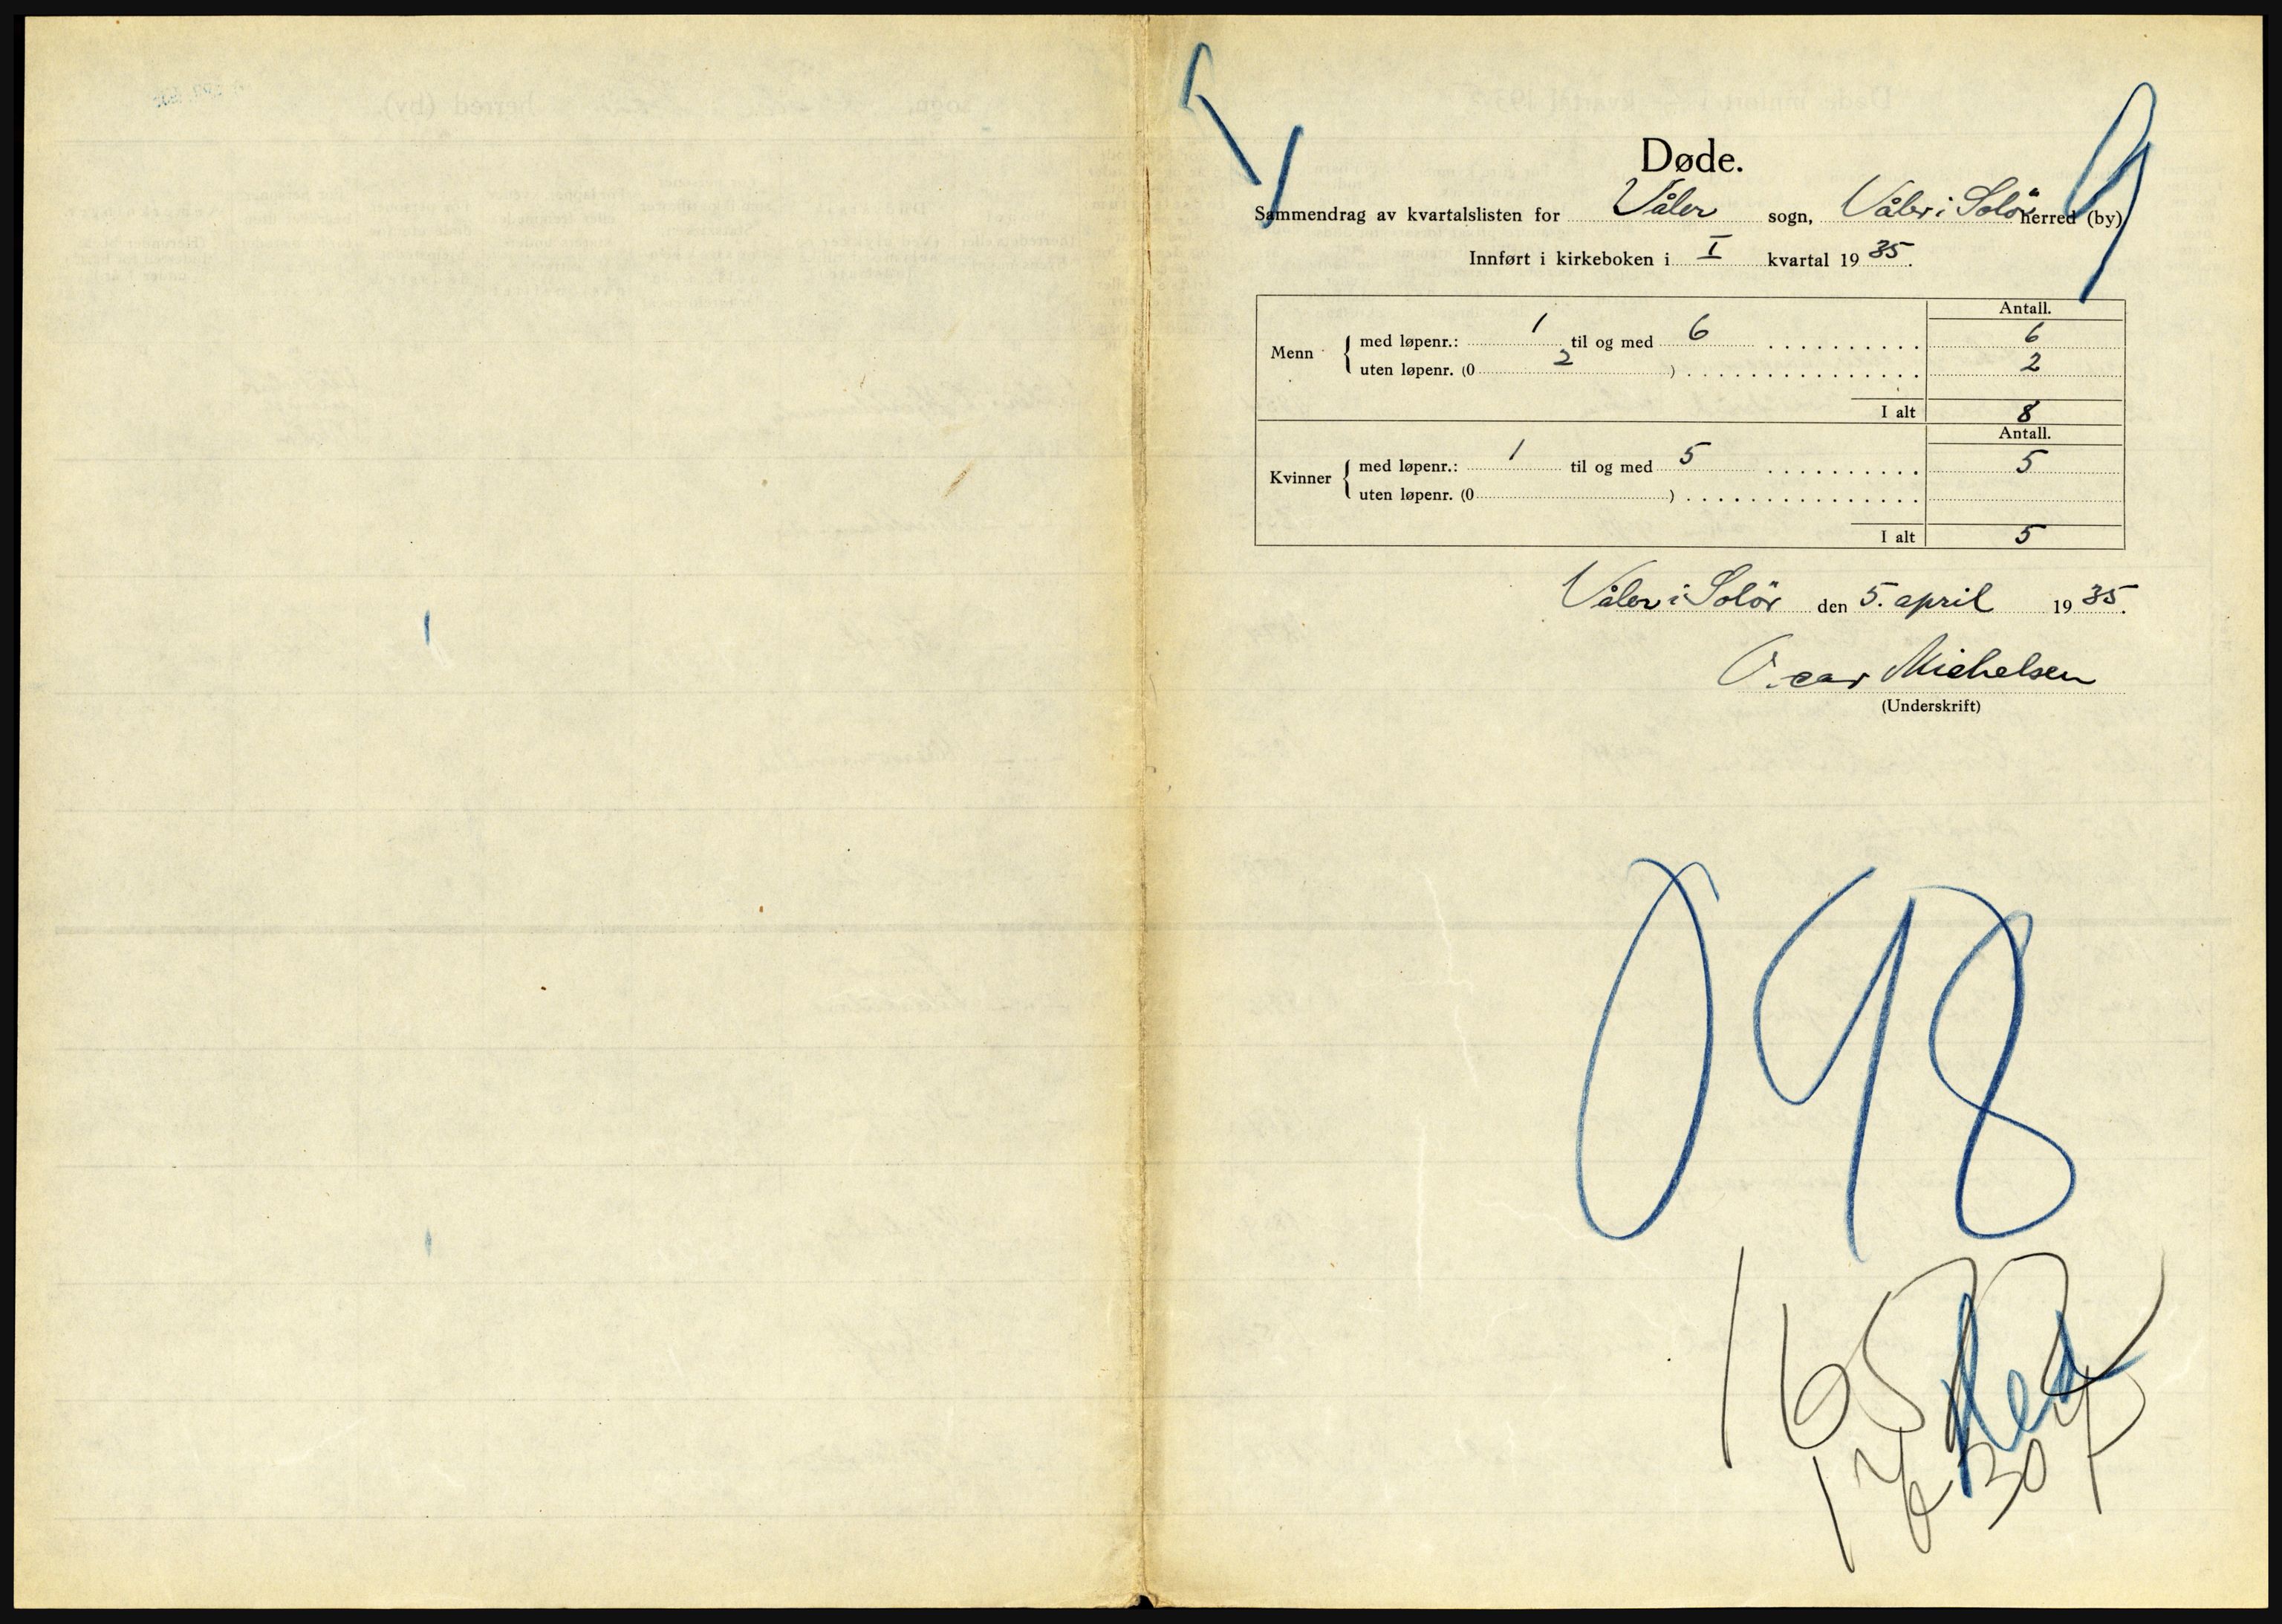 Døde.
Sammendrag av kvartalslisten for Våler sogn, Våler i Solör herred (by)
Innført i kirkeboken i I kvartal 1935.
Antall.
Menn { med løpenr.: 1 til og med 6 .......... 6
uten løpenr. (0 2 ) ............... 2
I alt 8
Antall.
Kvinner { med løpenr.: 1 til og med 5 .......... 5
uten løpenr. (0 ) ...............
I alt 5
Våler i Solör den 5. april 1935.
Oscar Michelsen
(Underskrift)
098